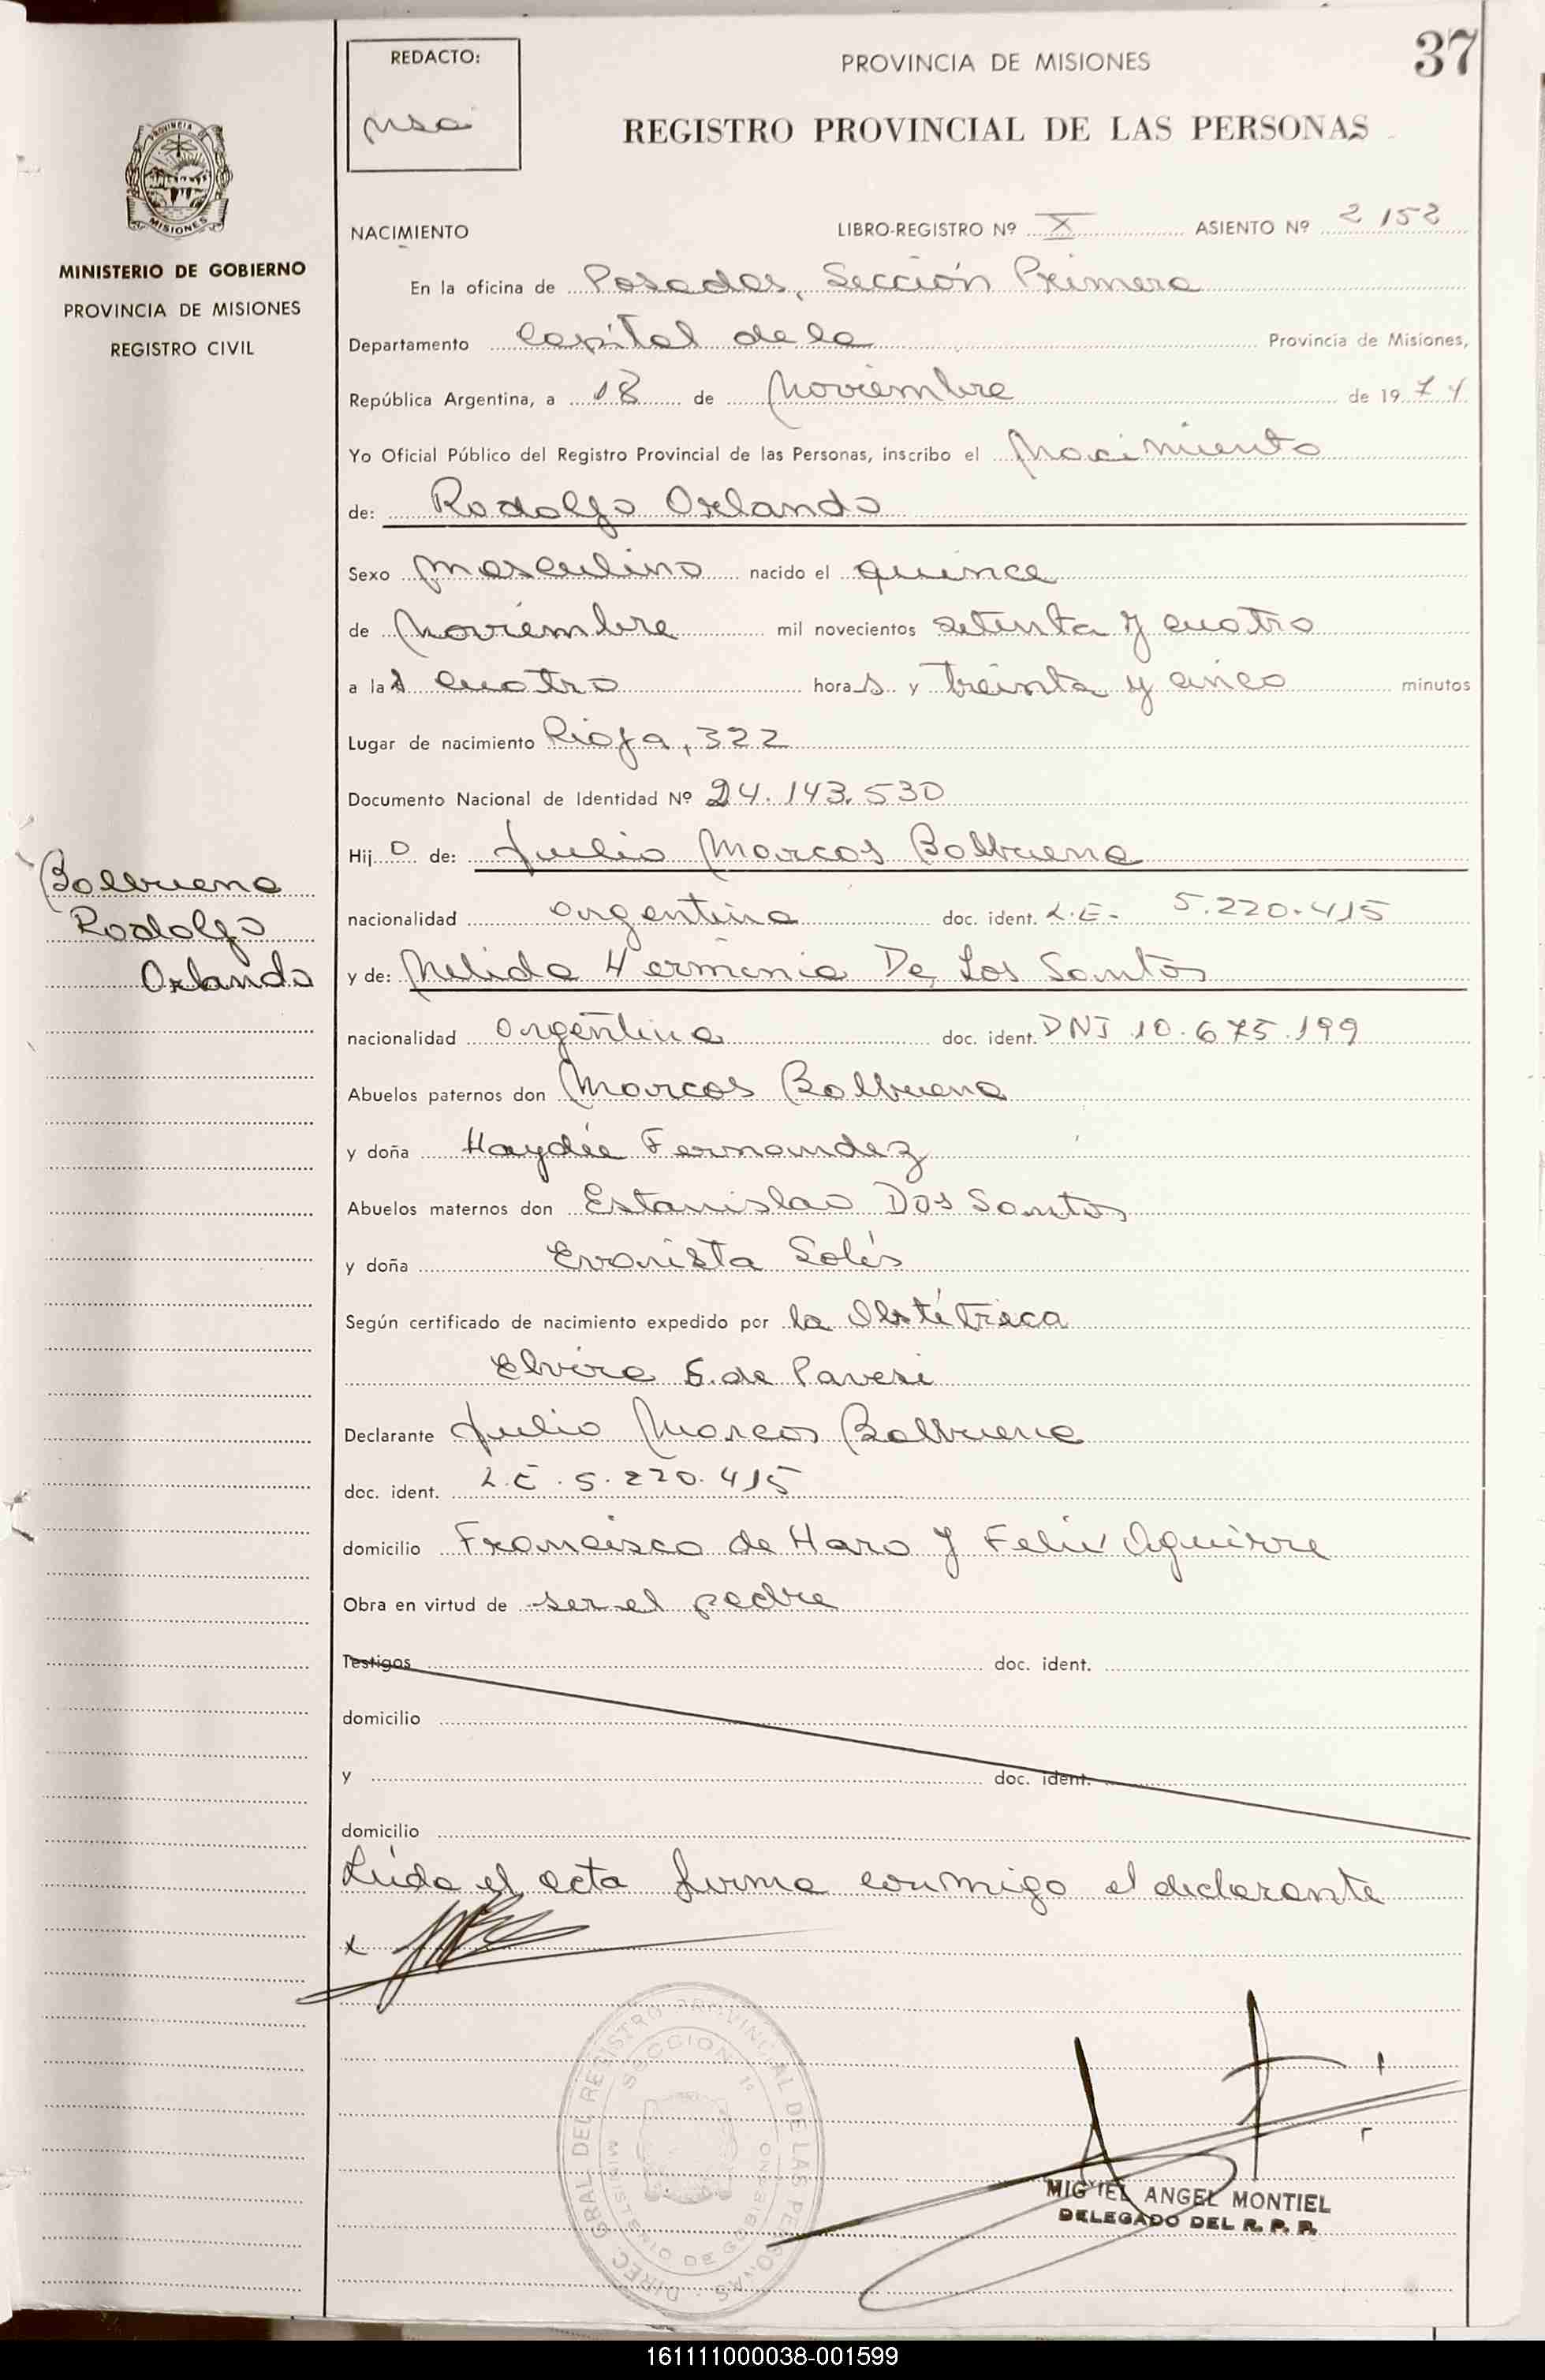 REDACTO:
PROVINCIA DE MISIONES
37
REGISTRO PROVINCIAL DE LAS PERSONAS
PROVINCIA DE
MISIONES
MINISTERIO DE GOBIERNO
PROVINCIA DE MISIONES
REGISTRO CIVIL
NACIMIENTO LIBRO-REGISTRO Nº X ASIENTO Nº 2152
En la oficina de Posadas, Sección Primera
Departamento Capital de la Provincia de Misiones,
República Argentina, a 18 de Noviembre de 1974
Yo Oficial Público del Registro Provincial de las Personas, inscribo el Nacimiento
de: Rodolfo Orlando
Sexo masculino nacido el quince
de Noviembre mil novecientos setenta y cuatro
a las cuatro horas y treinta y cinco minutos
Lugar de nacimiento Rioja, 322
Documento Nacional de Identidad Nº 24.143.530
Hijo de: Julio Marcos Balbuena
Balbuena
Rodolfo
Orlando
nacionalidad argentina doc. ident. L.E. 5.220.415
y de: Nelida Herminia De Los Santos
nacionalidad argentina doc. ident. DNI 10.675.199
Abuelos paternos don Marcos Balbuena
y doña Haydée Fernandez
Abuelos maternos don Estanislao Dos Santos
y doña Evarista Solís
Según certificado de nacimiento expedido por la Obstétrica
Elvira S. de Pavesi
Declarante Julio Marcos Balbuena
doc. ident. L.E. 5.220.415
domicilio Francisco de Haro y Felix Aguirre
Obra en virtud de ser el padre
Testigos doc. ident.
domicilio
y doc. ident.
domicilio
Leída el acta firma conmigo el declarante
x
DIREC. GRAL DEL REGISTRO PROVINCIAL DE LAS PERSONAS
SECCION 1ª
MINISTERIO DE GOBIERNO
MIGUEL ANGEL MONTIEL
DELEGADO DEL R. P. P.
161111000038-001599